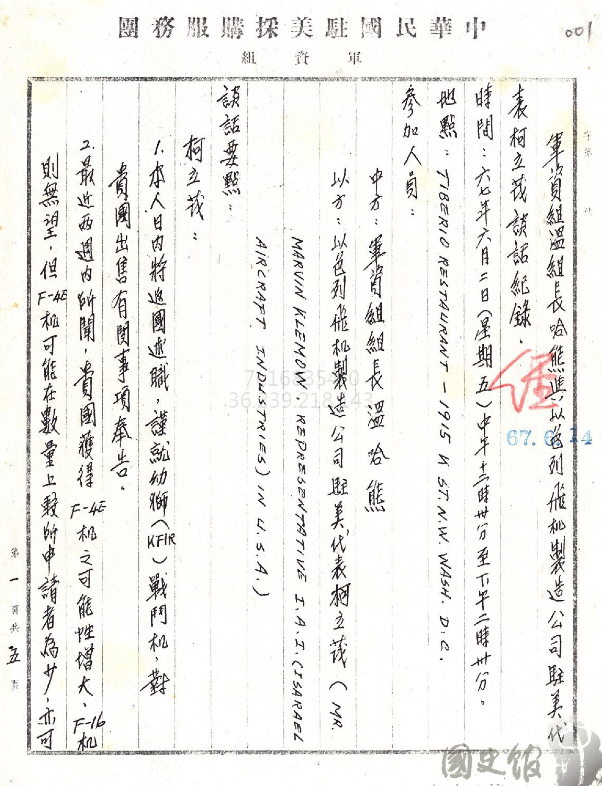 中華民國駐美採購服務團
軍資組
001
軍資組溫組長哈熊與以色列飛机製造公司駐美代
表柯立茂談話紀錄.
時間：六七年六月二日(星期五)中午十二時卅分至下午二時卅分。
地點：TIBERIO RESTAURANT - 1915 K ST. N.W. WASH. D.C.
參加人員：
中方：軍資組組長溫哈熊
以方：以色列飛机製造公司駐美代表柯立茂 (MR.
MARVIN KLEMOW REPRESENTATIVE I.A.I. (ISARAEL
AIRCRAFT INDUSTRIES) IN U.S.A.)
談話要點：
柯立茂：
1. 本人日內將返國述職，謹就幼獅(KFIR)戰鬥机，對
貴團出售有關事項奉告.
2. 最近兩週內所聞，貴國獲得F-4E机之可能性增大，F-16机
則無望，但F-4E机可能在數量上較所申請者為少，亦可
67.6.14
第一頁共五頁
國史館